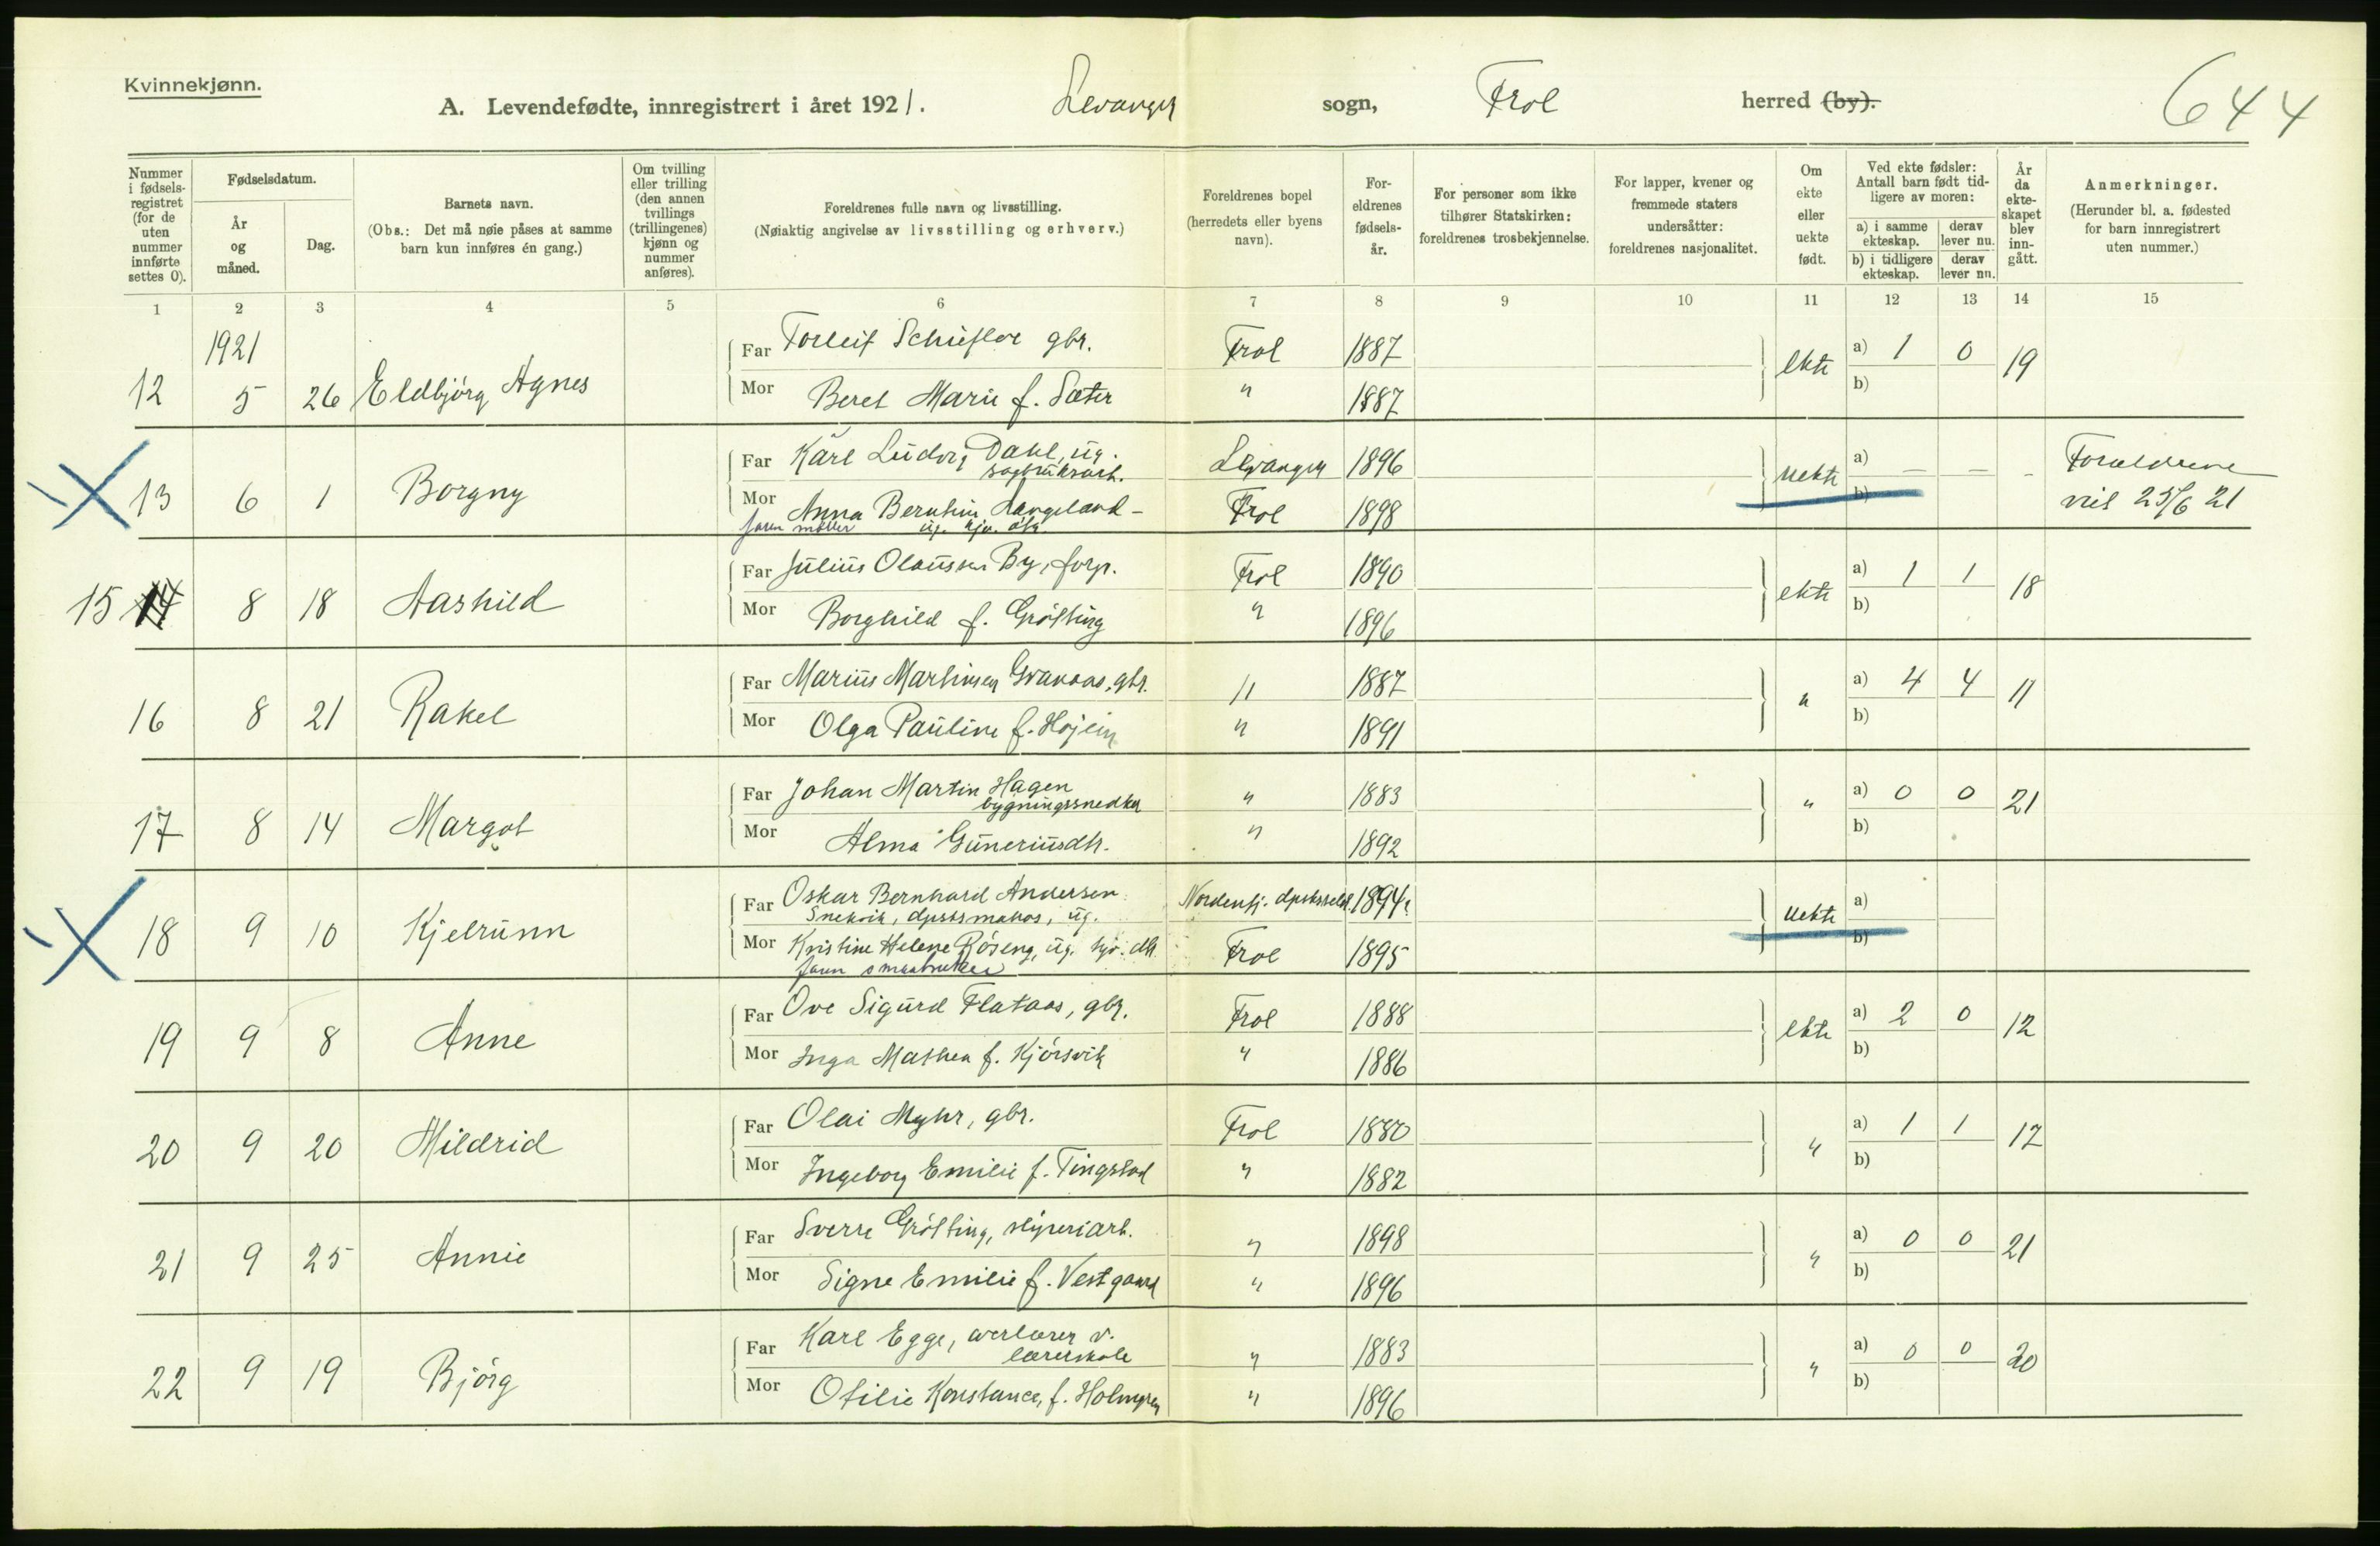 Kvinnekjønn.
A. Levendefødte, innregistrert i året 1921. Levanger sogn, Frol herred (by).
644
Nummer i fødsels-registret (for de uten nummer innførte settes 0).
Fødselsdatum.
År og måned.
Dag.
Barnets navn.
(Obs.: Det må nøie påses at samme barn kun innføres én gang.)
Om tvilling eller trilling (den annen tvillings (trillingenes) kjønn og nummer anføres).
Foreldrenes fulle navn og livsstilling.
(Nøiaktig angivelse av livsstilling og erhverv.)
Foreldrenes bopel (herredets eller byens navn).
For-eldrenes fødsels-år.
For personer som ikke tilhører Statskirken: foreldrenes trosbekjennelse.
For lapper, kvener og fremmede staters undersåtter: foreldrenes nasjonalitet.
Om ekte eller uekte født.
Ved ekte fødsler: Antall barn født tid-ligere av moren:
a) i samme ekteskap. derav lever nu.
b) i tidligere ekteskap. derav lever nu.
År da ekte-skapet blev inn-gått.
Anmerkninger.
(Herunder bl. a. fødested for barn innregistrert uten nummer.)
1 2 3 4 5 6 7 8 9 10 11 12 13 14 15
1921
Far Torleif gbr. Frol 1887
12 5 26 Eldbjörg Agnes ekte a) 1 0 19
Mor Beret Marie f. Sæter " 1887 b)
Far Karl Ludvig Dahl, ug. sagbruksarb. Levanger 1896
13 6 1 Borgny uekte a) – – – Foreldrene viet 25/6 21
Mor Anna Langeland Frol 1898 b)
ug.
Far Julius Olaussen By, forp. Frol 1890
15 14 8 18 Aashild ekte a) 1 1 18
Mor Borghild f. Gröfting " 1896 b)
Far Marius Martinsen gbr. " 1887
16 8 21 Rakel " a) 4 4 11
Mor Olga Pauline f. Hojem " 1891 b)
Far Johan Martin Hagen bygningssnedker " 1883
17 8 14 Margot " a) 0 0 21
Mor Alma Guneriusdtr. " 1892 b)
Far Oskar Bernhard Andersen Snekvik, ug. 1894
18 9 10 Kjelrunn uekte a)
Mor Kristine Helene Röseng, ug. Frol 1895 b)
smaabruker
Far Ove Sigurd Flataas, gbr. Frol 1888
19 9 8 Anne ekte a) 2 0 12
Mor Inga Mathea f. Kjörsvik " 1886 b)
Far Olai Myhr, gbr. Frol 1880
20 9 20 Mildrid " a) 1 1 17
Mor Ingeborg Emilie f. Tingstad " 1882 b)
Far Sverre Gröfting, arb. " 1898
21 9 25 Annie " a) 0 0 21
Mor Signe Emilie f. Vestgaard " 1896 b)
Far Karl Egge, v. lærerskole " 1883
22 9 19 Björg " a) 0 0 20
Mor Otilie Konstance, f. Holmgren " 1896 b)